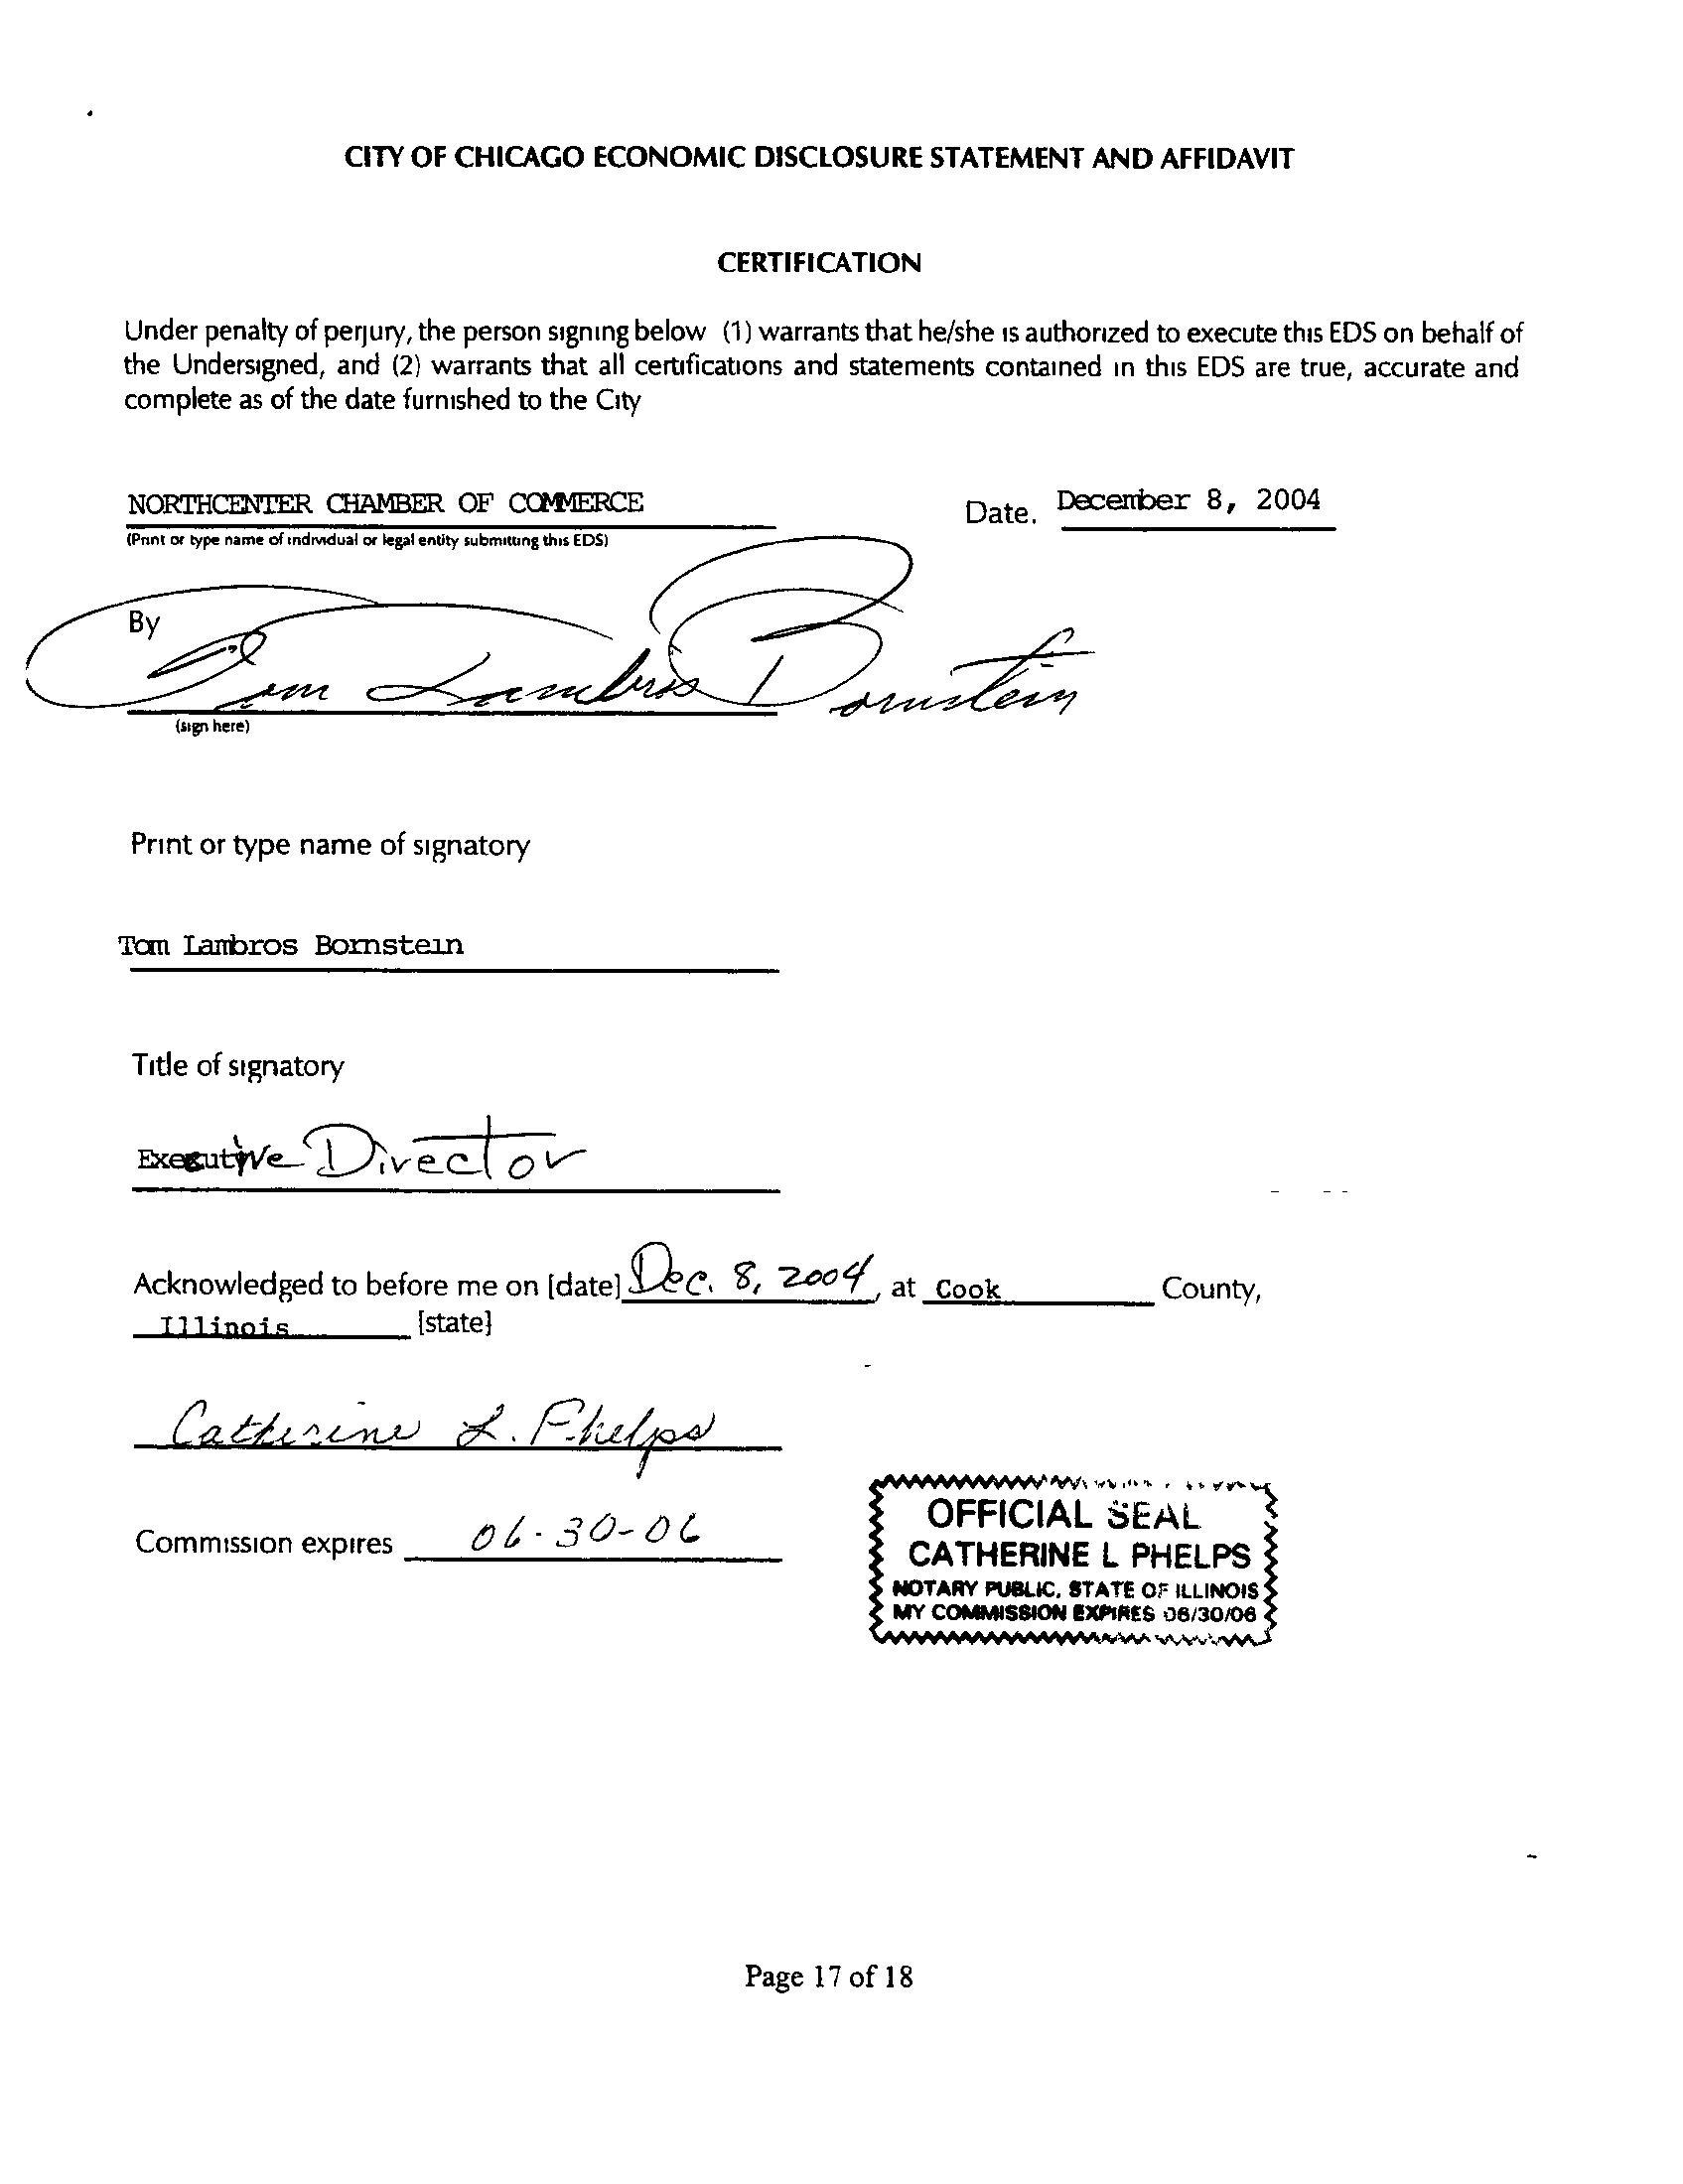 CITY OF CHICAGO ECONOMIC DISCLOSURE STATEMENT AND AFFIDAVIT
CERTIFICATION
Under penalty of perjury, the person signing below (1) warrants that he/she is authorized to execute this EDS on behalf of
the Undersigned, and (2) warrants that all certifications and statements contained in this EDS are true, accurate and
complete as of the date furnished to the City
NORTHCENTER CHAMBER OF COMMERCE
(Print or type name of individual or legal entity submitting this EDS)
Date. December 8, 2004
By
Tom Lambros Bornstein
(sign here)
Print or type name of signatory
Tom Lambros Bornstein
Title of signatory
Executive Director
Acknowledged to before me on [date] Dec. 8, 2004, at Cook County,
Illinois [state]
Catherine L. Phelps
Commission expires 06-30-06
OFFICIAL SEAL
CATHERINE L PHELPS
NOTARY PUBLIC, STATE OF ILLINOIS
MY COMMISSION EXPIRES 06/30/06
Page 17 of 18